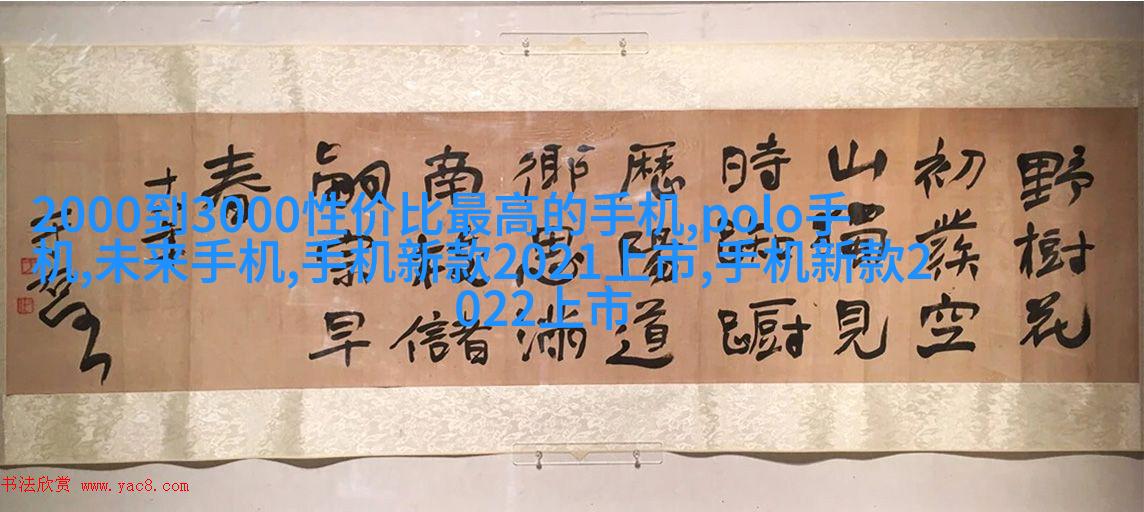 野樹花
初發空
山獨見
時踟躕
歷陽道
鄉思滿
南枝儲
嗣宗早
春
2000到3000性价比最高的手机,polo手
机,未来手机,手机新款2021上市,手机新款2
022上市
书法欣赏 www.yac8.com